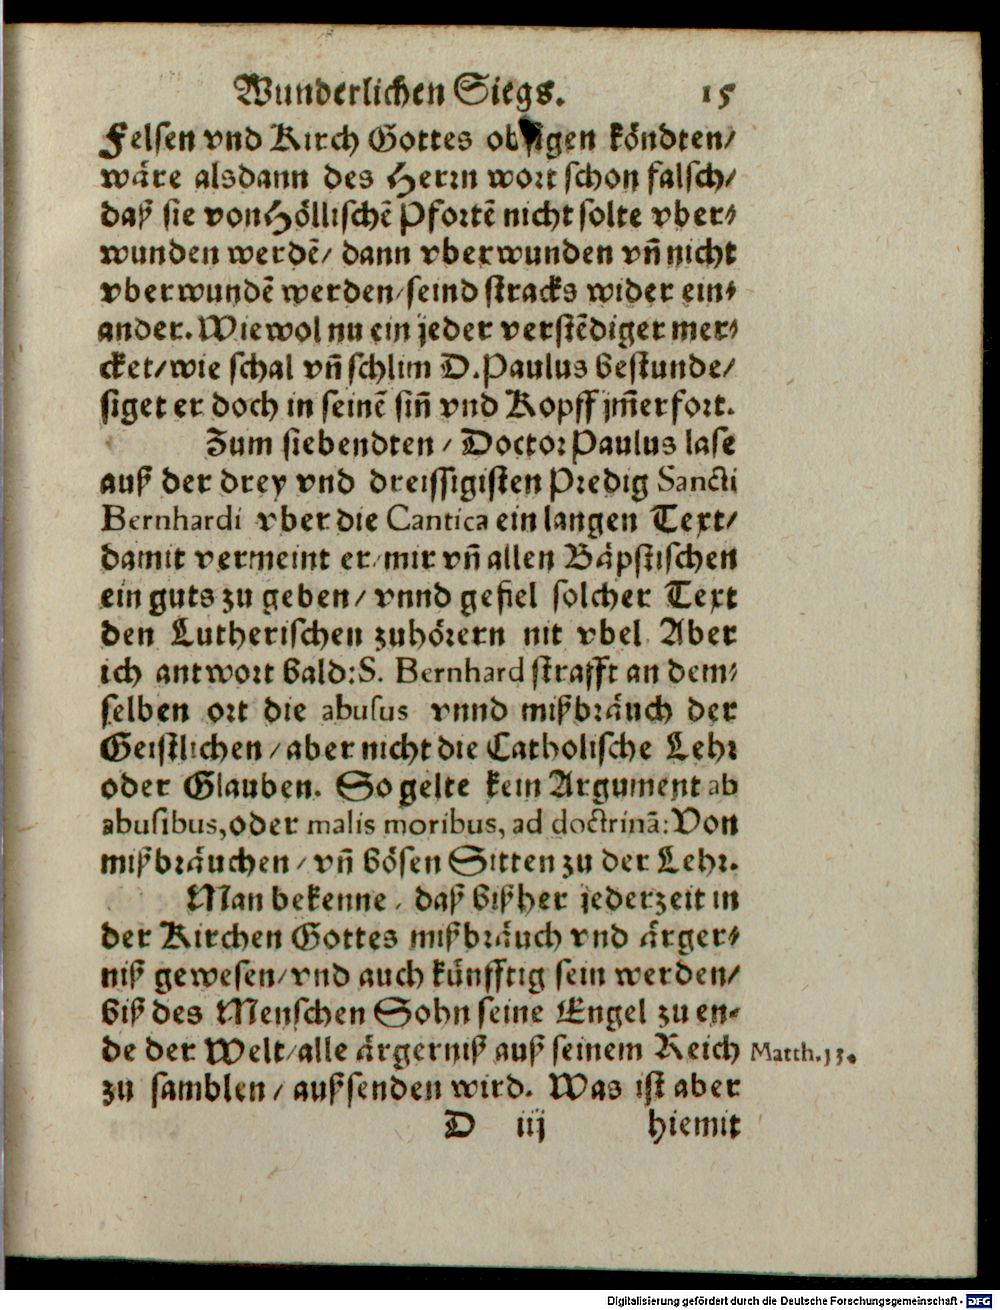 Wunderlichen Siegs. 15
Felsen vnd Kirch Gottes obsigen köndten/
wäre alsdann des Herrn wort schon falsch/
daß sie von Höllischē Pfortē nicht solte vber⸗
wunden werdē/ dann vberwunden vñ nicht
vberwundē werden/ seind stracks wider ein⸗
ander. Wiewol nu ein jeder verstēdiger mer⸗
cket/ wie schal vñ schlim D. Paulus bestunde/
siget er doch in seinē siñ vnd Kopff jm̃erfort.
Zum siebendten/ Doctor Paulus lase
auß der drey vnd dreissigisten Predig Sancti
Bernhardi vber die Cantica ein langen Text/
damit vermeint er/ mir vñ allen Bäpstischen
ein guts zu geben/ vnnd gefiel solcher Text
den Lutherischen zuhörern nit vbel. Aber
ich antwort bald: S. Bernhard strafft an dem⸗
selben ort die abusus vnnd mißbräuch der
Geistlichen/ aber nicht die Catholische Lehr
oder Glauben. So gelte kein Argument ab
abusibus, oder malis moribus, ad doctrinā: Von
mißbräuchen/ vñ bösen Sitten zu der Lehr.
Man bekenne/ daß bißher jederzeit in
der Kirchen Gottes mißbräuch vnd ärger⸗
niß gewesen/ vnd auch künfftig sein werden/
biß des Menschen Sohn seine Engel zu en⸗
de der Welt/ alle ärgerniß auß seinem Reich Matth. 13.
zu samblen/ außsenden wird. Was ist aber
D iij hiemit
Digitalisierung gefördert durch die Deutsche Forschungsgemeinschaft - DFG